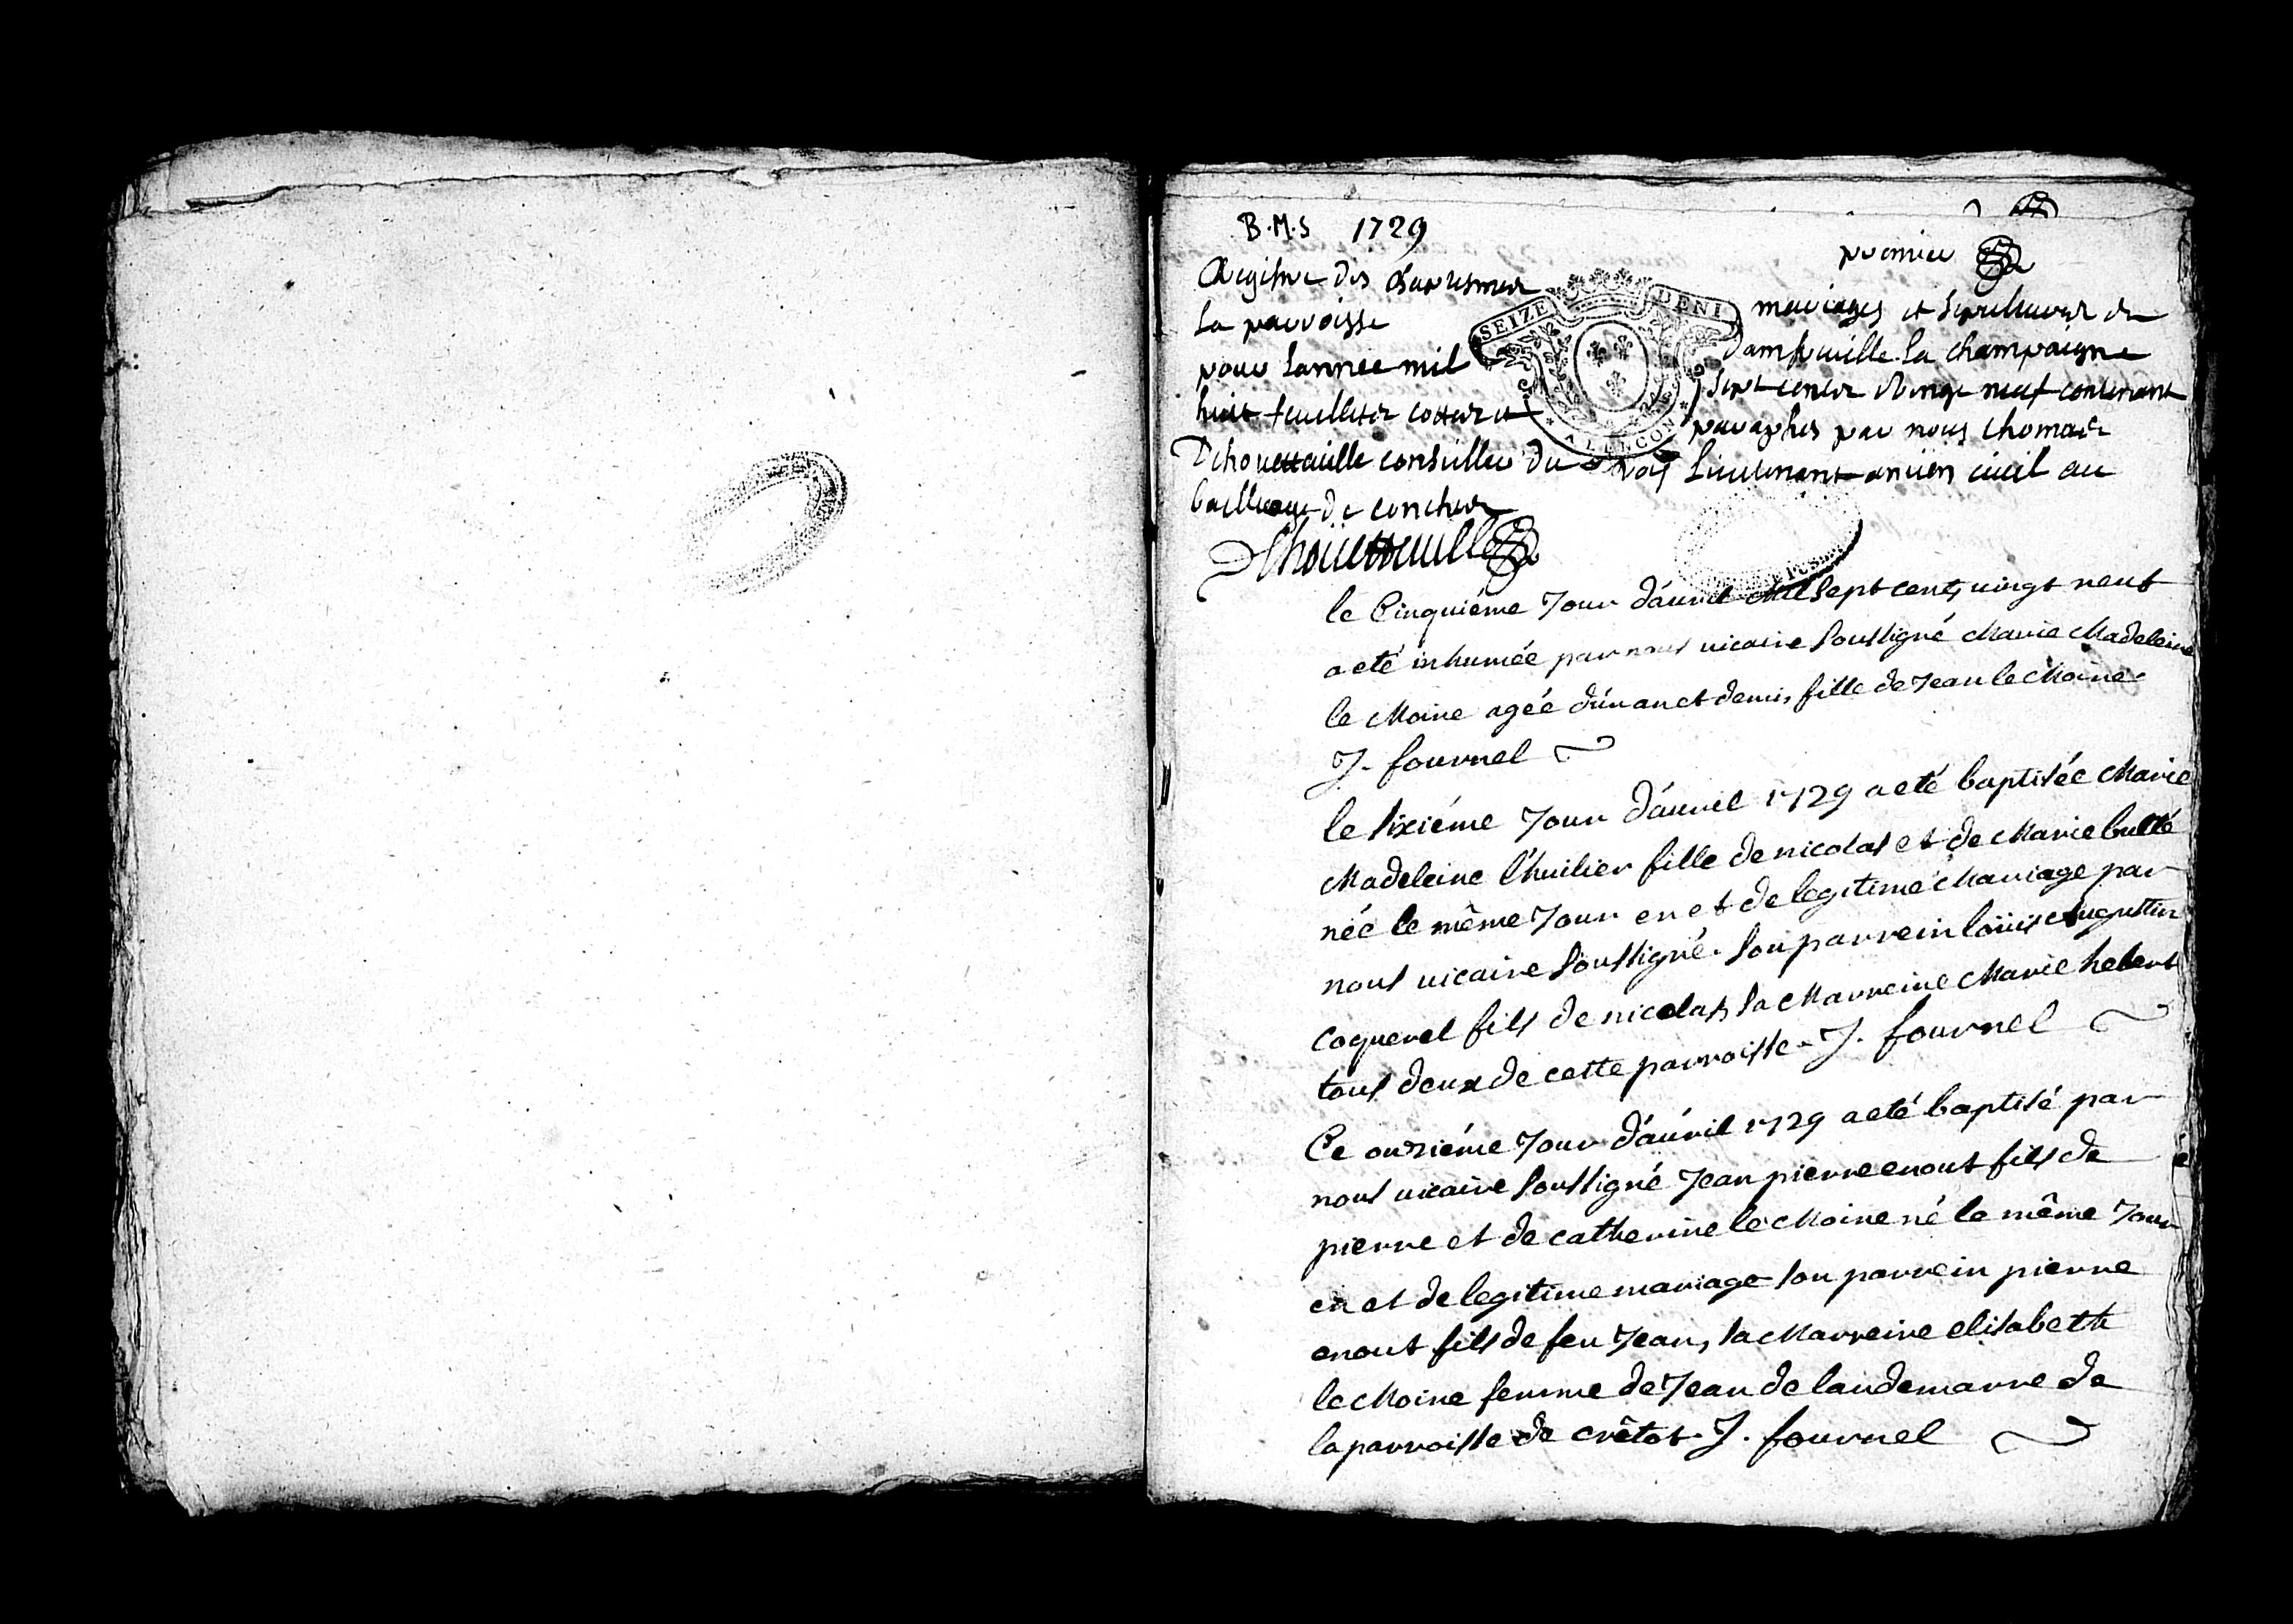 B.M.S 1729
premier
Registre des Baptesmes mariages et sepultures de
la parroisse Damfreville la champaigne
pour Lannée mil sept cents Vingt neuf contenant
huit feuillets cottez et paraphés par nous thomas
Dehouetteuille conseiller du roy Lieutenant ancien ciuil au
bailliage de conches
Dehoüetteuille
SEIZE DENI
ALENCON
le Cinquiéme Jour dáuril Mil Sept cents uingt neuf
a eté inhumée par nous uicaire Soussigné Marie Madeleine
le Moine agéé dún an et demi, fille de Jean le Moine
J. fournel
le sixiéme Jour dáuril 1729 a eté baptisée Marie
Madeleine l'huilier fille de nicolas et de Marie
néé le même Jour en et de legitime Mariage par
nous uicaire Soussigné. Son parrein loüis Augustin
coquerel fils de nicolas, sa Marreine Marie hebert
tous deux de cette parroisse. J. fournel
Ce onziéme Jour dáuril 1729 a eté baptisé par
nous uicaire Soussigné Jean pierre enout fils de
pierre et de catherine le Moine né le même Jour
en et de legitime mariage son parrein pierre
enout fils de feu Jean, sa Marreine elisabeth
le Moine femme de Jean de landemarre de
la parroisse de crêtot. J. fournel